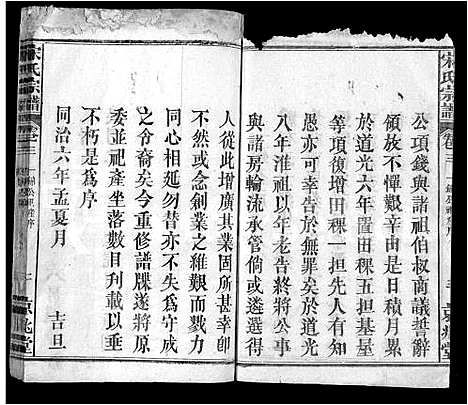 宋氏宗譜
公項錢與諸祖伯叔商議誓辭
領放不憚艱辛由是日積月累
於道光六年置田稞五担基屋
等項復頂田稞一担先人有此
愚亦可幸告於無罪矣於道光
八年淮祖以年老告終將公項
與諸房輪流承管倘或遴選得
人從此增廣其業固所甚幸卽
不然亦必念創業之維艱而戮力
同心勿替旧規亦不失爲守成
之令裔矣今重修譜牒遂將原
委並祀產坐落數目刊載以垂
不朽是爲序
同治六年孟夏月
吉旦
宋氏宗譜
京兆堂